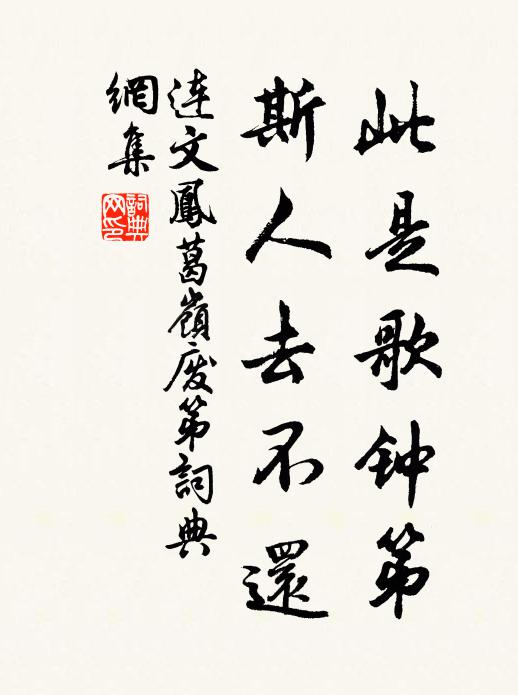 此是歌钟第
斯人去不還
连文鳳葛嶺廢第詞典
網集
詞典网印